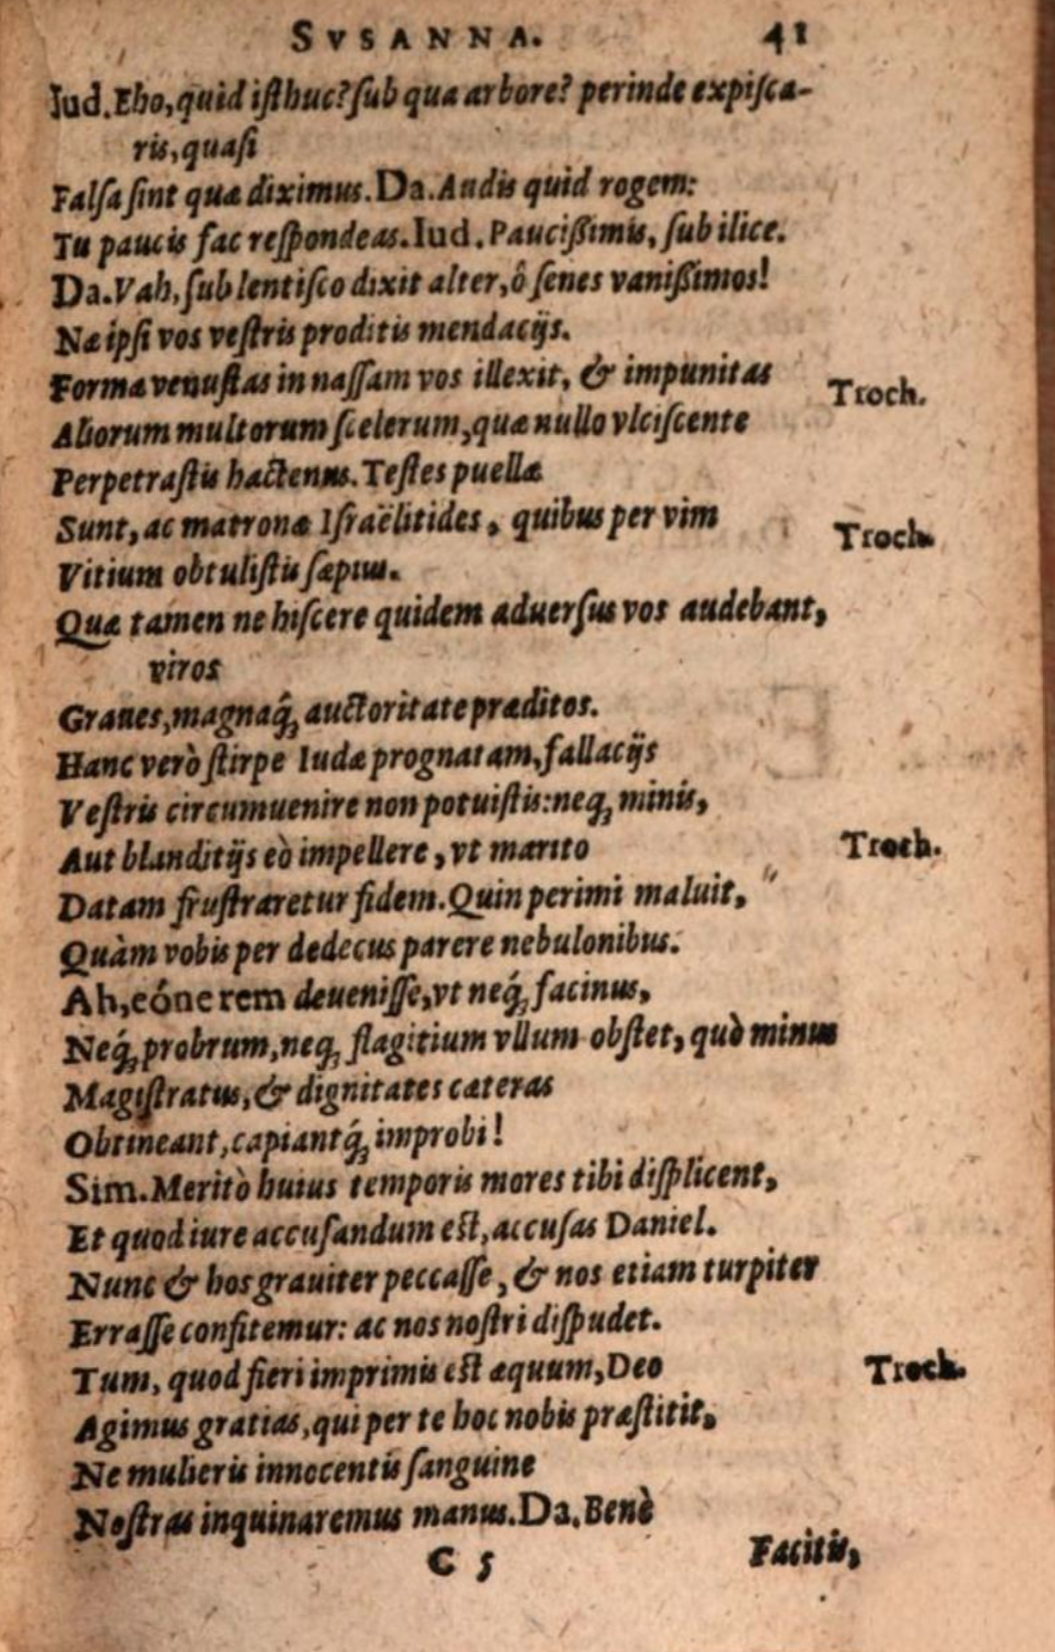 SVSANNA. 41
Iud. Eho, quid isthuc? sub qua arbore? perinde expisca-
ris, quasi
Falsa sint quæ diximus. Da. Audis quid rogem:
Tu paucis fac respondeas. Iud. Paucißimis, sub ilice.
Da. Vah, sub lentisco dixit alter, ô senes vanißimos!
Næ ipsi vos vestris proditis mendacijs.
Formæ venustas in nassam vos illexit, & impunitas Troch.
Aliorum multorum scelerum, quæ nullo vlciscente
Perpetrastis hactenus. Testes puellæ
Sunt, ac matronæ Israëlitides, quibus per vim Troch.
Vitium obtulistis sæpius.
Quæ tamen ne hiscere quidem aduersus vos audebant,
viros
Graues, magnaq́; auctoritate præditos.
Hanc verò stirpe Iudæ prognatam, fallacijs
Vestris circumuenire non potuistis: neq; minis,
Aut blanditijs eò impellere, vt marito Troch.
Datam frustraretur fidem. Quin perimi maluit, "
Quàm vobis per dedecus parere nebulonibus.
Ah, eóne rem deuenisse, vt neq́; facinus,
Neq́; probrum, neq; flagitium vllum obstet, quò minus
Magistratus, & dignitates cæteras
Obtineant, capiantq́; improbi!
Sim. Meritò huius temporis mores tibi displicent,
Et quod iure accusandum est, accusas Daniel.
Nunc & hos grauiter peccasse, & nos etiam turpiter
Errasse confitemur: ac nos nostri dispudet.
Tum, quod fieri imprimis est æquum, Deo Troch.
Agimus gratias, qui per te hoc nobis præstitit,
Ne mulieris innocentis sanguine
Nostras inquinaremus manus. Da. Benè
C 5 Facitis,